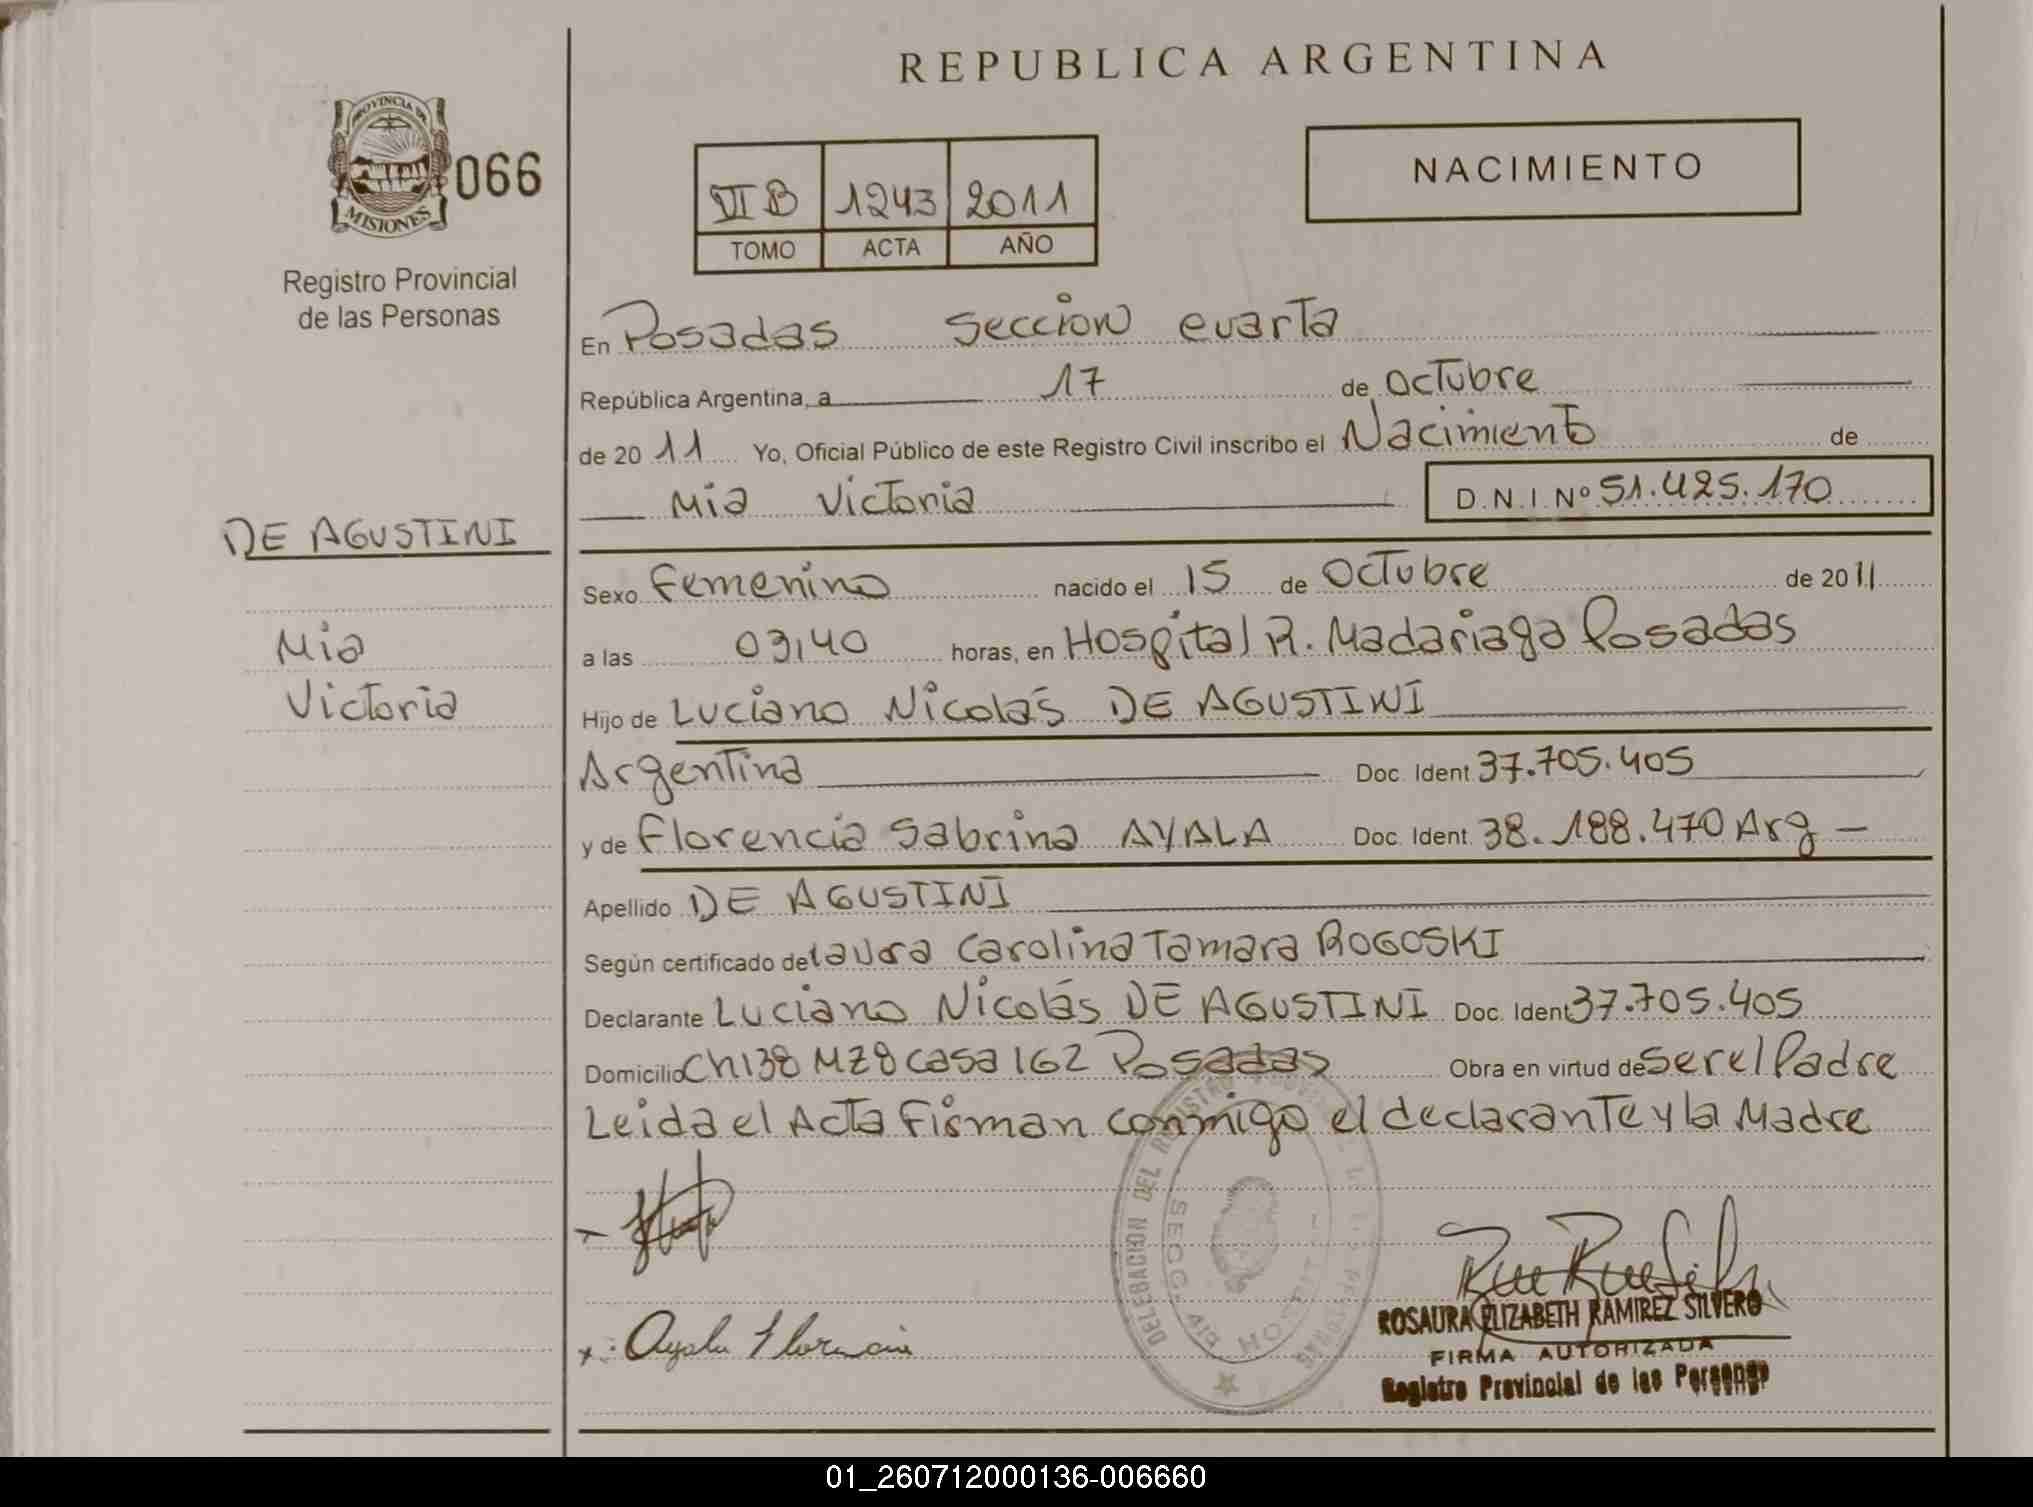 REPUBLICA ARGENTINA
PROVINCIA DE
MISIONES
066
Registro Provincial
de las Personas
VI B 1243 2011
TOMO ACTA AÑO
NACIMIENTO
En Posadas Sección cuarta
República Argentina, a 17 de Octubre
de 20 11 Yo, Oficial Público de este Registro Civil inscribo el Nacimiento de
Mia Victoria D.N.I. Nº 51.425.170
DE AGUSTINI
Mia
Victoria
Sexo Femenino nacido el 15 de Octubre de 2011
a las 03,40 horas, en Hospital R. Madariaga Posadas
Hijo de Luciano Nicolás DE AGUSTINI
Argentina Doc. Ident 37.705.405
y de Florencia Sabrina AYALA Doc. Ident. 38.188.470 Arg –
Apellido DE AGUSTINI
Según certificado de Laura Carolina Tamara ROGOSKI
Declarante Luciano Nicolás DE AGUSTINI Doc. Ident 37.705.405
Domicilio Ch138 MZ8 casa 162 Posadas Obra en virtud de ser el Padre
Leida el Acta Firman conmigo el declarante y la Madre
DELEGACION DEL REGISTRO
SECC. 4ta
Ayala Florencia
ROSAURA ELIZABETH RAMIREZ SILVERO
FIRMA AUTORIZADA
Registro Provincial de las Personas
01_260712000136-006660